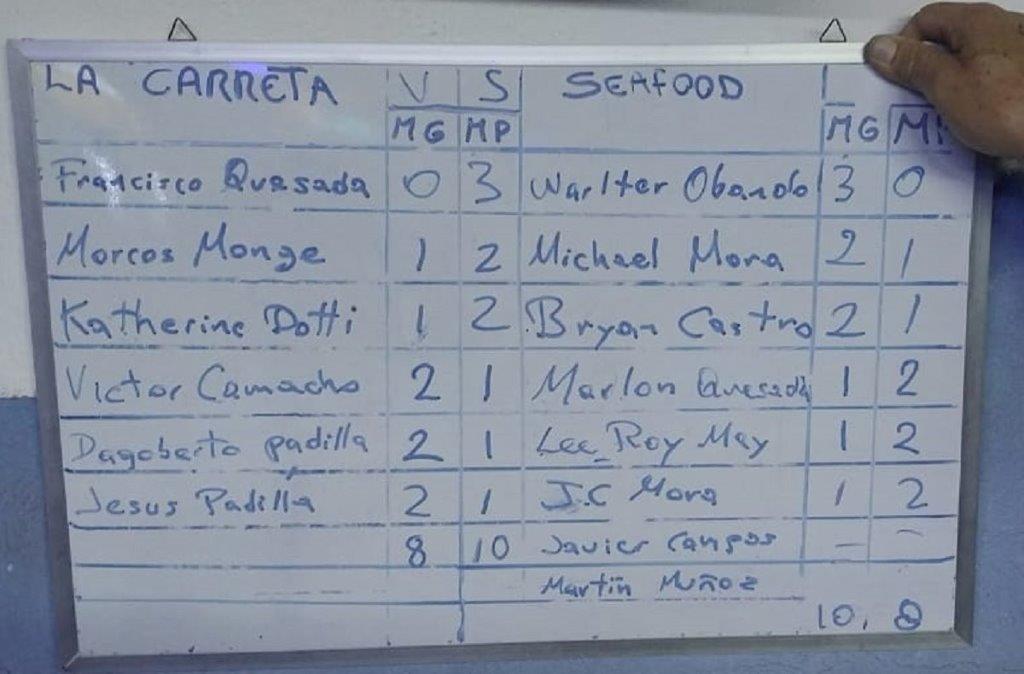 LA CARRETA V S SEAFOOD
MG MP MG
Francisco Quesada 0 3 Warlter Obando 3 0
Morcos Monge 1 2 Michael Mora 2 1
Katherine Dotti 1 2 Bryan Castro 2 1
Victor Camacho 2 1 Marlon Quesada 1 2
Dagoberto padilla 2 1 Lee Roy May 1 2
Jesus Padilla 2 1 J.C Mora 1 2
8 10 Javier Campos — —
Martin Muñoz
10. 8